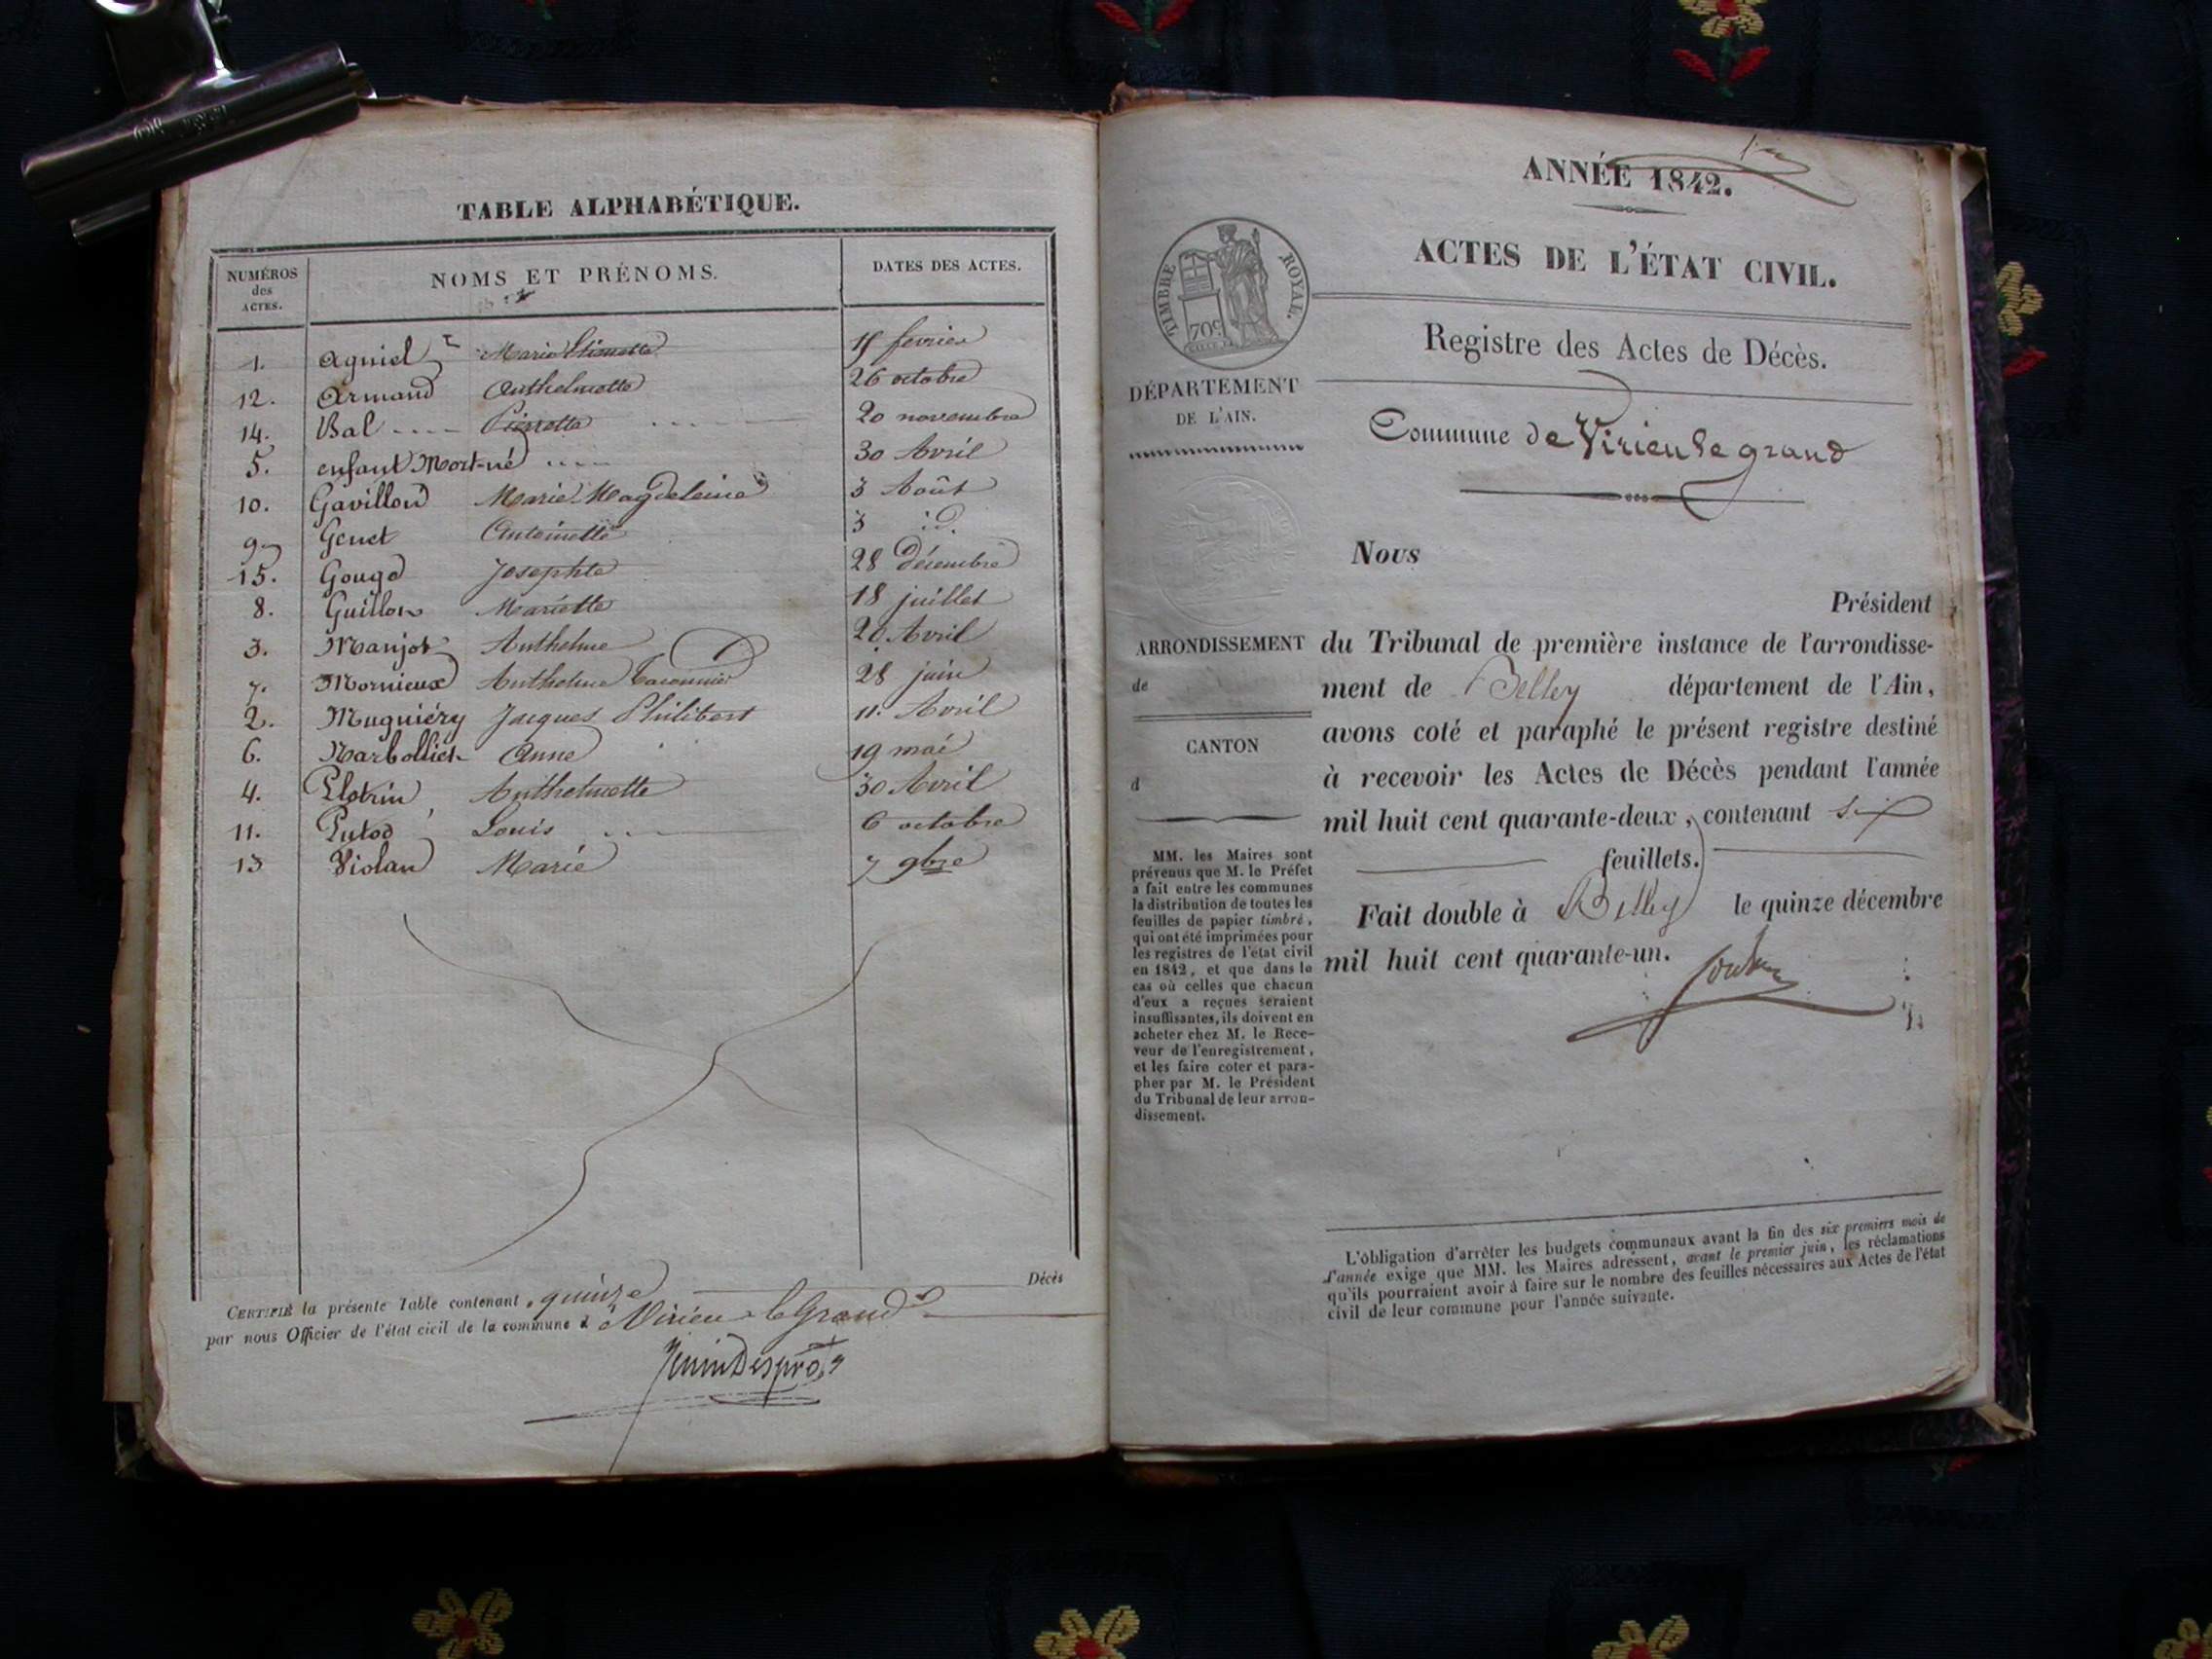 TABLE ALPHABÉTIQUE.
NUMÉROS des ACTES. NOMS ET PRÉNOMS. DATES DES ACTES.
1. Agniel Marie Etiennette février
12. Armand Anthelmette 26 octobre
14. Bal Pierrette 20 novembre
5. enfant Mort-né 30 Avril
10. Gavillon Marie Magdeleine 3 Août
9 Genet Antoinette 3 id.
15. Gouge Josephte 28 Décembre
8. Guillon Mariette 18 juillet
3. Manjot Anthelme 20 Avril
7. Mornieux Anthelme 28 juin
2. Muguiéry Jacques Philibert 11. Avril
6. Narbolliet Anne 19 mai
4. Plotrin Anthelmette 30 Avril
11. Putod Louis 6 octobre
13 Violan Marie 7 9bre
Décès
CERTIFIÉ la présente Table contenant quinze
par nous Officier de l'état civil de la commune d Virieu le Grand
ANNÉE 1842.
ACTES DE L'ÉTAT CIVIL.
TIMBRE ROYAL.
70c
Registre des Actes de Décès.
DÉPARTEMENT
DE L'AIN.
Commune de Virieu le grand
Nous
Président
ARRONDISSEMENT
de
CANTON
d
du Tribunal de première instance de l'arrondisse-
ment de Belley département de l'Ain,
avons coté et paraphé le présent registre destiné
à recevoir les Actes de Décès pendant l'année
mil huit cent quarante-deux, contenant six
feuillets.
Fait double à Belley le quinze décembre
mil huit cent quarante-un.
MM. les Maires sont
prévenus que M. le Préfet
a fait entre les communes
la distribution de toutes les
feuilles de papier timbré,
qui ont été imprimées pour
les registres de l'état civil
en 1842, et que dans le
cas où celles que chacun
d'eux a reçues seraient
insuffisantes, ils doivent en
acheter chez M. le Rece-
veur de l'enregistrement,
et les faire coter et para-
pher par M. le Président
du Tribunal de leur arron-
dissement.
L'obligation d'arrêter les budgets communaux avant la fin des six premiers mois de
l'année exige que MM. les Maires adressent, avant le premier juin, les réclamations
qu'ils pourraient avoir à faire sur le nombre des feuilles nécessaires aux Actes de l'état
civil de leur commune pour l'année suivante.